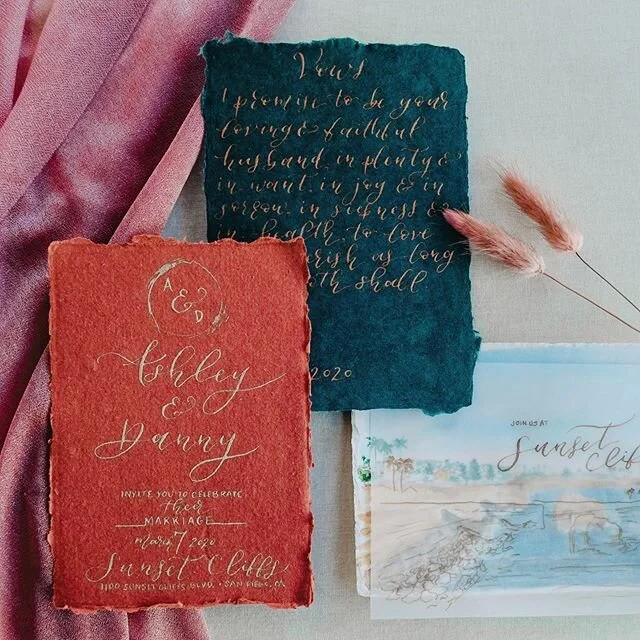 Vows
I promise to be your
loving & faithful
husband, in plenty &
in want, in joy & in
sorrow, in sickness &
in health, to love
erish as long
th shall
2020
A & D
Ashley
&
Danny
INVITE YOU TO CELEBRATE
their
MARRIAGE
march 7 2020
Sunset Cliffs
1100 SUNSET CLIFFS BLVD. • SAN DIEGO, CA
JOIN US AT
Sunset Cliff